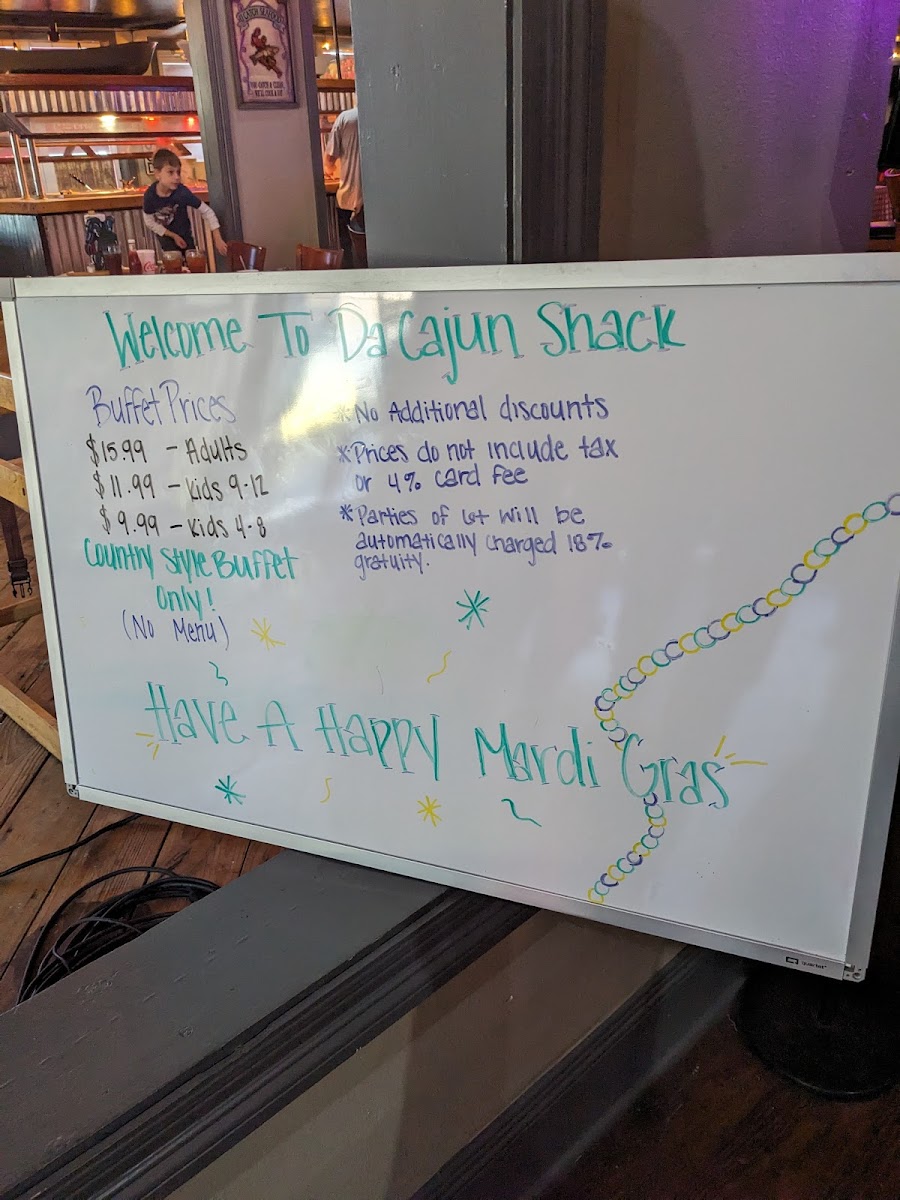 Welcome To Da Cajun Shack
Buffet Prices
$15.99 - Adults
$11.99 - Kids 9-12
$9.99 - Kids 4-8
Country Style Buffet
Only!
(No Menu)
*No Additional discounts
*Prices do not include tax
or 4% card fee
*Parties of 6+ will be
automatically charged 18%
gratuity.
Have A Happy Mardi Gras
Quartet